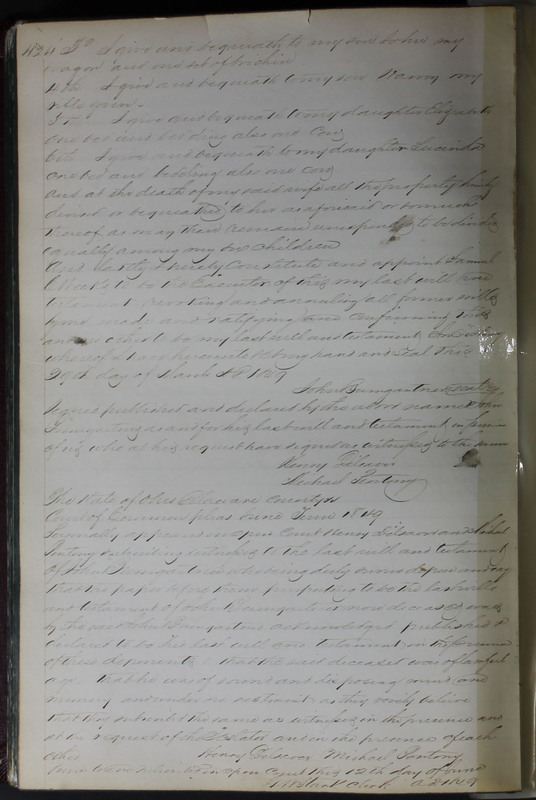 424 3d I give and bequeath to my son John my
wagon and one set of
4th I give and bequeath to my son my
5th I give and bequeath to my daughter Elizabeth
one bed and bedding also one cow
6th I give and bequeath to my daughter Lucinda
one bed and bedding also one cow
and at the death of my said wife all the property hereby
devised or bequeathed to her as aforesaid or so much
thereof as may then remain unexpended to be divided
equally among my children
And lastly I hereby constitute and appoint Samuel
to be the Executor of this my last will and
testament revoking and annulling all former wills
by me made and ratifying and confirming this
and no other to be my last will and testament In testimony
whereof I have hereunto set my hand and seal this
29th day of March AD 1849
John Bumgartner Seal
Signed published and declared by the above named John
Bumgartner as and for his last will and testament in presence
of us who at his request have signed as witnesses to the same
Henry
Michael Pontony
The State of Ohio Delaware County ss
Court of Common pleas June Term 1849
Personally appeared in open Court Henry and Michael
Pontony subscribing witnesses to the last will and testament
of John Bumgartner who being duly sworn depose and say
that the paper before them purporting to be the last will
and testament of John Bumgartner now deceased was
by the said John Bumgartner acknowledged published &
declared to be his last will and testament in the presence
of these deponents that the said deceased was of lawful
age that he was of sound and disposing mind and
memory and under no restraint as they verily believe
that they subscribed the same as witnesses in the presence and
at the request of the Testator and in the presence of each
other Henry Michael Pontony
Sworn to and subscribed in open Court this 12th day of June
Clerk A.D. 1849